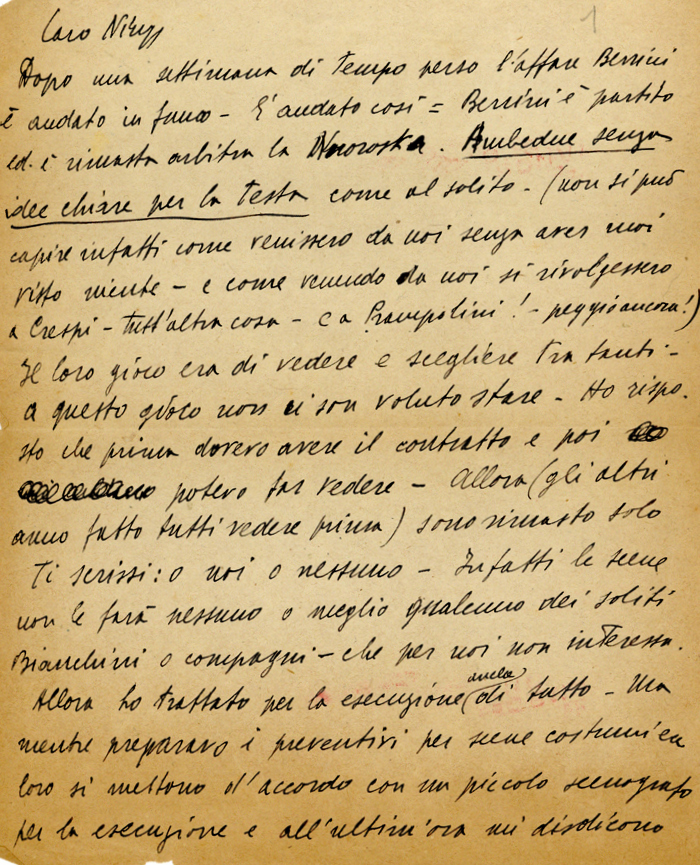 1
Caro
Dopo una settimana di tempo perso l'affare Bernini
è andato in fumo – E' andato così = Bernini è partito
ed è rimasta arbitra la . Ambedue senza
idee chiare per la testa come al solito – (non si può
capire infatti come venissero da noi senza aver mai
visto niente – e come venendo da noi si rivolgessero
a Crespi – tutt'altra cosa – e a Prampolini! – peggio ancora!)
Il loro gioco era di vedere e scegliere tra tanti –
a questo gioco non ci son voluto stare – Ho rispo-
sto che prima dovevo avere il contratto e poi
potevo far vedere – Allora (gli altri
anno fatto tutti vedere prima) sono rimasto solo
Ti scrissi: o noi o nessuno – Infatti le scene
non le farà nessuno o meglio qualcuno dei soliti
Bianchini o compagni – che per noi non interessa.
Allora ho trattato per la esecuzione (anche di tutto – Ma
mentre preparavo i preventivi per scene costumi ecc
loro si mettono d'accordo con un piccolo scenografo
per la esecuzione e all'ultim'ora mi disdicono